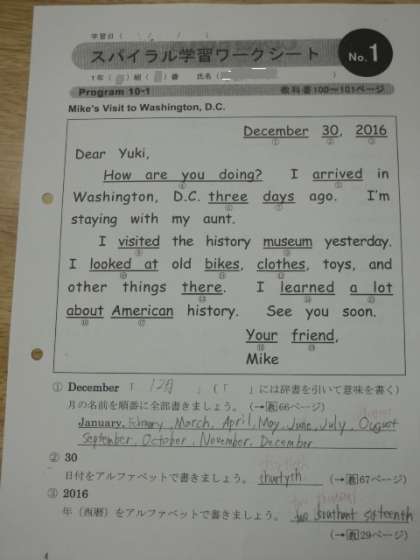 学習日( / / )
スパイラル学習ワークシート No.1
1年( )組( )番 氏名( )
Program 10-1 教科書100〜101ページ
Mike's Visit to Washington, D.C.
December 30, 2016
① ② ③
Dear Yuki,
How are you doing? I arrived in
Washington, D.C. three days ago. I'm
staying with my aunt.
I visited the history museum yesterday.
I looked at old bikes, clothes, toys, and
other things there. I learned a lot
about American history. See you soon.
Your friend,
Mike
① December 「 12月 」(「 」には辞書を引いて意味を書く)
月の名前を順番に全部書きましょう。(→教66ページ)
January, March, April, May, June, July, Ougust
September, October, November, December
② 30
日付をアルファベットで書きましょう。 thurtyth (→教67ページ)
③ 2016
年(西暦)をアルファベットで書きましょう。 two southant sixteenth
(→教29ページ)
4